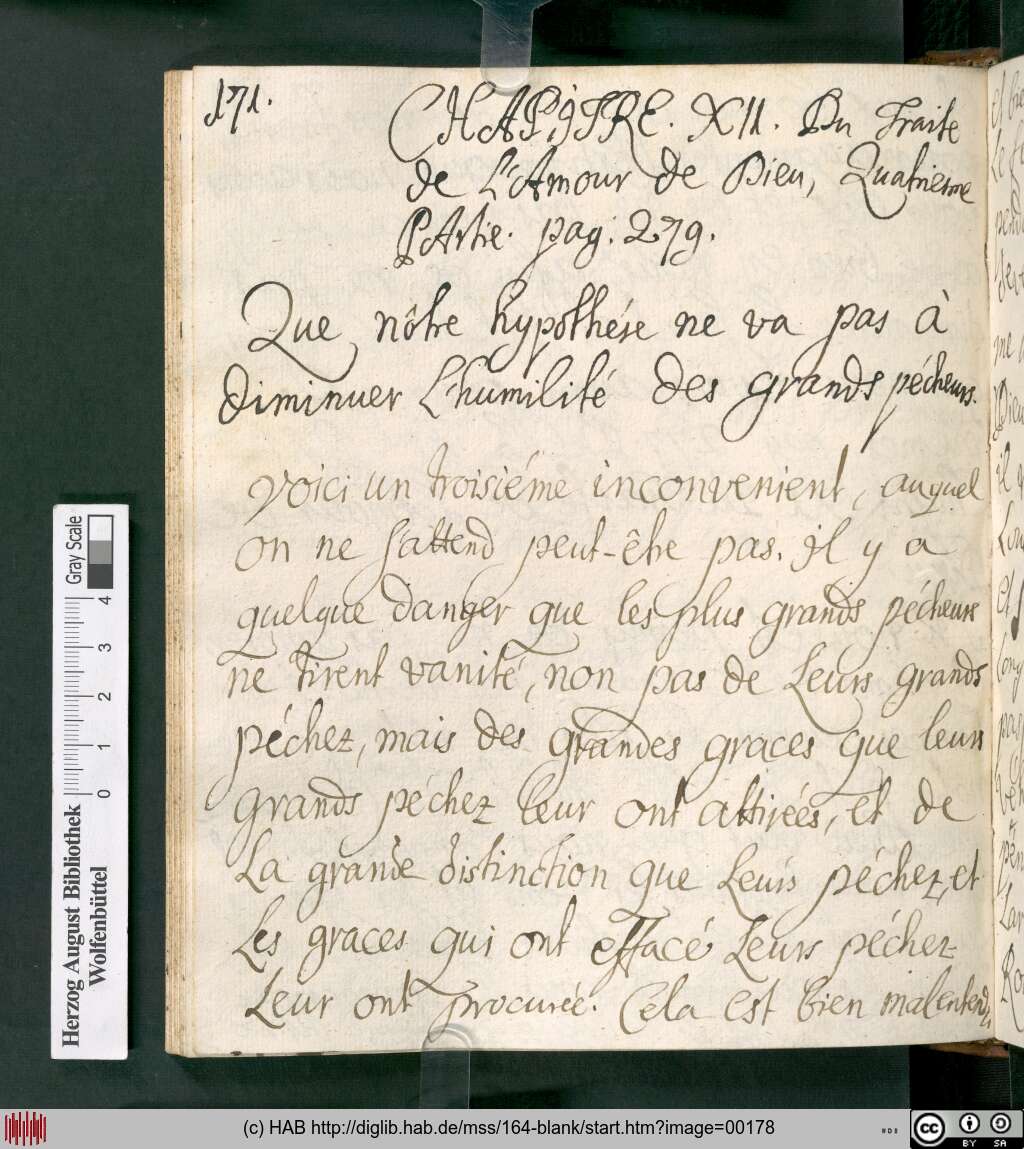 171.
CHAPITRE. XII. Du Traite
de L'Amour de Dieu, Quatriesme
PArtie. pag: 279.
Que nôtre hypothése ne va pas à
diminuer L'humilité des grands pécheurs.
Voici un troisiéme inconvenient, auquel
on ne s'attend peut-être pas. il y a
quelque danger que les plus grands pécheurs
ne tirent vanité, non pas de Leurs grands
péchez, mais des grandes graces que leurs
grands péchez leur ont attirées, et de
La grande distinction que Leurs péchez, et
Les graces qui ont effacé Leurs péchez
Leur ont procurée. Cela est bien malentendu,
Herzog August Bibliothek
Wolfenbüttel
0 1 2 3 4
Gray Scale
(c) HAB http://diglib.hab.de/mss/164-blank/start.htm?image=00178
cc BY SA